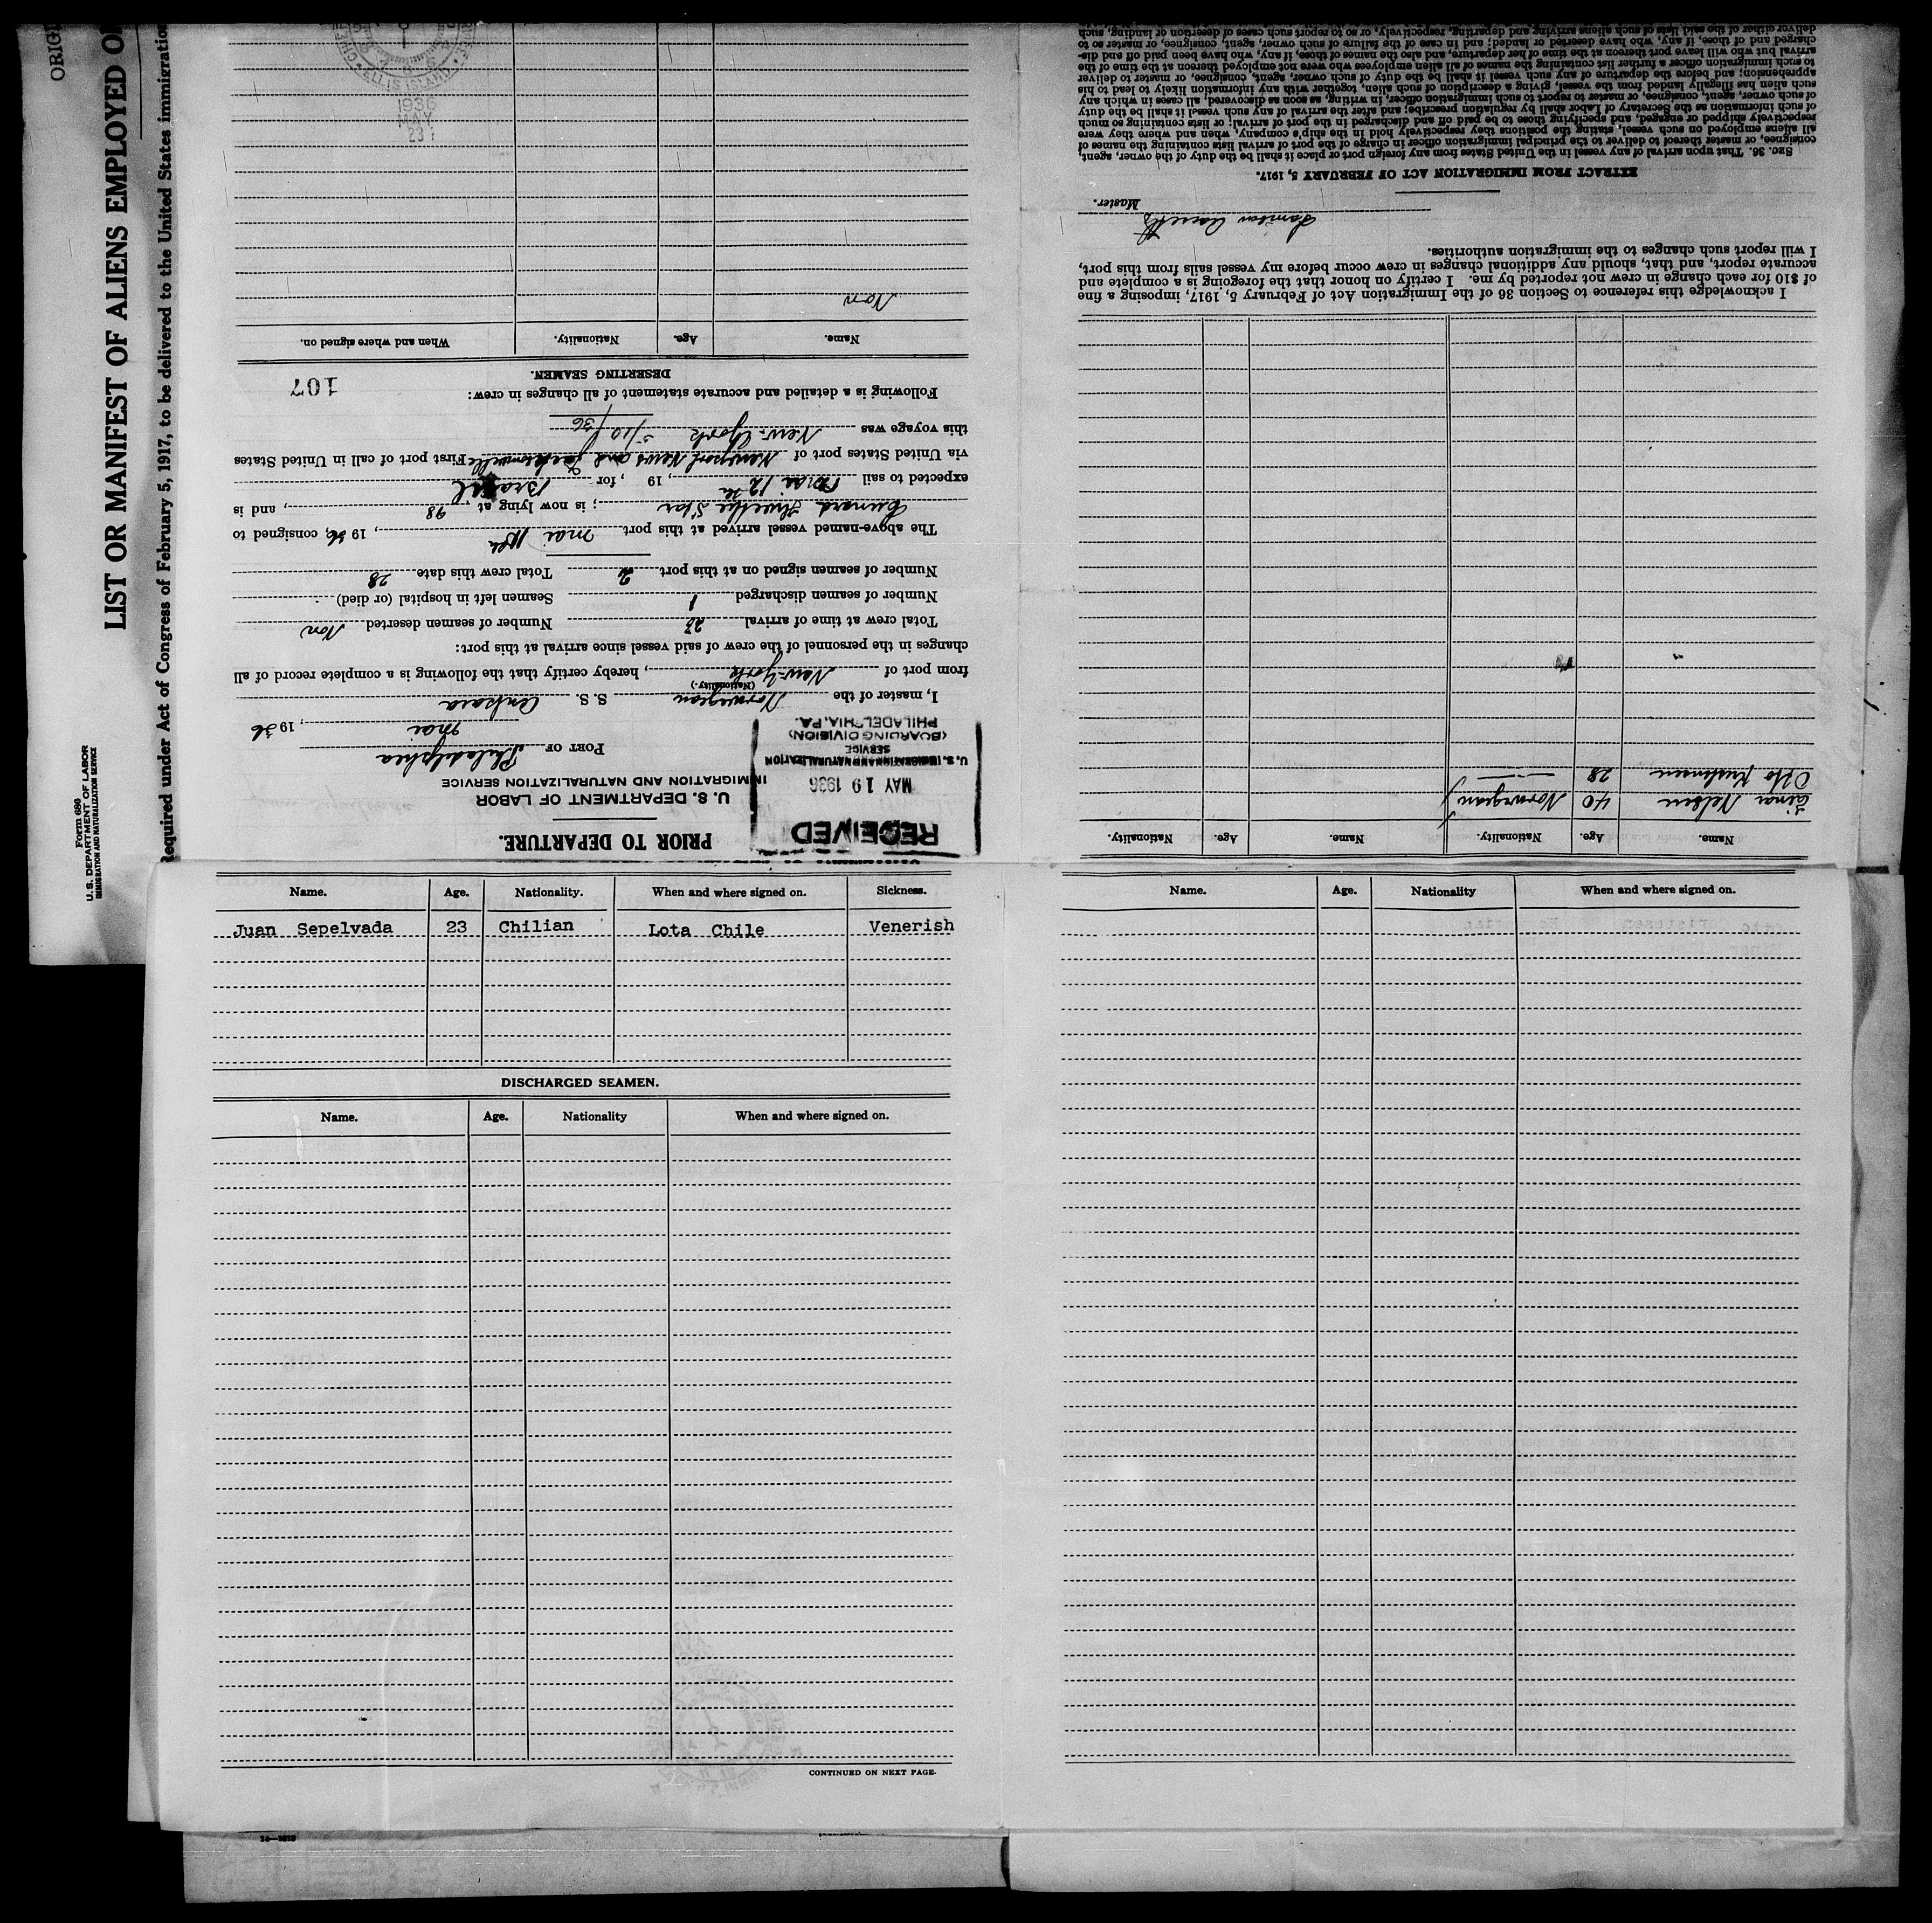 ORIGI
LIST OR MANIFEST OF ALIENS EMPLOYED O
Required under Act of Congress of February 5, 1917, to be delivered to the United States immigration
Form 680
U.S. DEPARTMENT OF LABOR
IMMIGRATION AND NATURALIZATION SERVICE
RECEIVED
MAY 19 1936
U. S. IMMIGRATION AND NATURALIZATION
SERVICE
(BOARDING DIVISION)
PHILADELPHIA, PA.
PRIOR TO DEPARTURE.
U. S. DEPARTMENT OF LABOR
IMMIGRATION AND NATURALIZATION SERVICE
PORT OF Philadelphia
mai, 1936
I, master of the Norwegian S. S.
(Nationality.)
from port of New-York, hereby certify that the following is a complete record of all
changes in the personnel of the crew of said vessel since arrival at this port:
Total crew at time of arrival Number of seamen deserted Non
Number of seamen discharged 1 Seamen left in hospital (or died)
Number of seamen signed on at this port 2 Total crew this date 28
The above-named vessel arrived at this port mai, 1936, consigned to
Star; is now lying at 98, and is
expected to sail mai 12th, 19 , for Brazil
via United States port of Newport News and Jacksonville First port of call in United States
this voyage was New-York 5/10/36
Following is a detailed and accurate statement of all changes in crew:
107
DESERTING SEAMEN.
Name. Age. Nationality. When and where signed on.
Non
ELLIS ISLAND
1936
MAY
23
Name. Age. Nationality. Name. Age. Nationality.
Einar Nelsen 40 Norwegian
Otto Kristensen 28 —"—
I acknowledge this reference to Section 36 of the Immigration Act of February 5, 1917, imposing a fine
of $10 for each change in crew not reported by me. I certify on honor that the foregoing is a complete and
accurate report, and that, should any additional changes in crew occur before my vessel sails from this port,
I will report such changes to the immigration authorities.
Master.
EXTRACT FROM IMMIGRATION ACT OF FEBRUARY 5, 1917.
SEC. 36. That upon arrival of any vessel in the United States from any foreign port or place it shall be the duty of the owner, agent,
consignee, or master thereof to deliver to the principal immigration officer in charge of the port of arrival lists containing the names of
all aliens employed on such vessel, stating the positions they respectively hold in the ship's company, when and where they were
respectively shipped or engaged, and specifying those to be paid off and discharged in the port of arrival; or lists containing so much
of such information as the Secretary of Labor shall by regulation prescribe; and after the arrival of any such vessel it shall be the duty
of such owner, agent, consignee, or master to report to such immigration officer, in writing, as soon as discovered, all cases in which any
such alien has illegally landed from the vessel, giving a description of such alien, together with any information likely to lead to his
apprehension; and before the departure of any such vessel it shall be the duty of such owner, agent, consignee, or master to deliver
to such immigration officer a further list containing the names of all alien employees who were not employed thereon at the time of the
arrival but who will leave port thereon at the time of her departure, and also the names of those, if any, who have been paid off and dis-
charged and of those, if any, who have deserted or landed; and in case of the failure of such owner, agent, consignee, or master so to
deliver either of the said lists of such aliens arriving and departing, respectively, or so to report such cases of desertion or landing, such
Name. Age. Nationality. When and where signed on. Sickness.
Juan Sepelvada 23 Chilian Lota Chile Venerish
DISCHARGED SEAMEN.
Name. Age. Nationality When and where signed on.
CONTINUED ON NEXT PAGE.
Name. Age. Nationality When and where signed on.